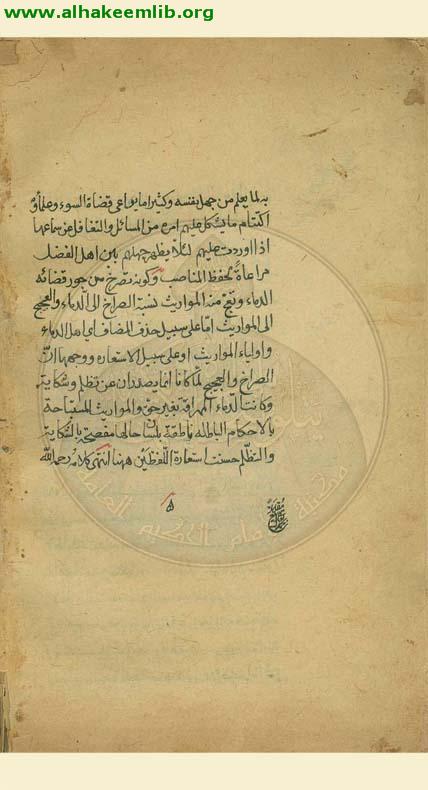 www.alhakeemlib.org
به لما يعلم من جهل نفسه وكثيرا ما يراعى قضاة السوء وعلماؤ
اكتتام ما يشكل عليهم امره من المسائل والتغافل عن سماعها
اذا اوردت عليهم لئلا يظهر جهلهم بين اهل الفضل
مراعاة لحفظ المناصب وكونه تصرخ من جور قضائه
الدماء وتعج منه المواريث نسبة الصراخ الى الدماء والعجيج
الى المواريث اما على سبيل حذف المضاف اى اهل الدماء
واولياء المواريث او على سبيل الاستعاره ووجهها ان
الصراخ والعجيج لما كانا انما يصدران عن تظلم وشكاية
وكانت الدماء المهراقة بغير حق والمواريث المستباحة
بالاحكام الباطله ناطقة بلسان حالها مفصحة بالشكاية
والتظلم حسنت استعارة اللفظين ههنا انتهى كلامه رحمه الله
ه